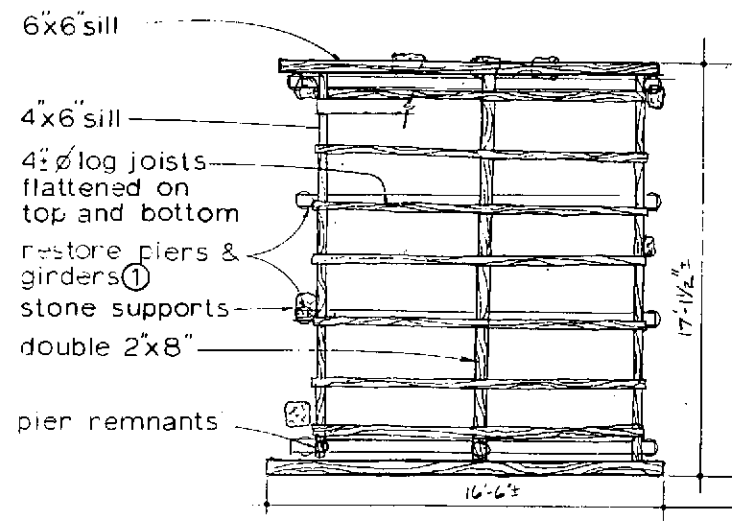 6"x6" sill
4"x6" sill
4"± ø log joists
flattened on
top and bottom
restore piers &
girders ①
stone supports
double 2"x8"
pier remnants
17'-1½"±
16'-6"±